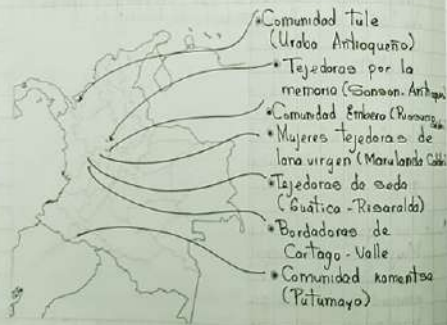 * Comunidad Tule
(Uraba Antioqueño)
* Tejedoras por la
memoria (Sonson.
* Comunidad Embera
* Mujeres tejedoras de
lana virgen (Marulanda
* Tejedoras de seda
(Guática - Risaralda)
* Bordadoras de
Cartago - Valle
* Comunidad kamentsa
(Putumayo)